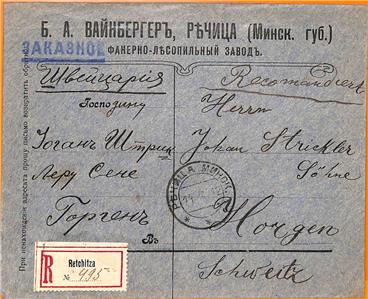 Б. А. ВАЙНБЕРГЕРЪ, РѢЧИЦА (Минск. губ.)
ФАНЕРНО-ЛѢСОПИЛЬНЫЙ ЗАВОДЪ.
ЗАКАЗНОЕ
При ненахожденіи адресата прошу письмо возвратить
Швейцарія
Recomandiert
Господину
Herrn
Іоганъ Штрик
Johan Strickler
Леру Сене
Söhne
Горгенъ
Horgen
Въ
Schweitz
РѢЧИЦА МИНСК.
R
Retchitza
№ 495